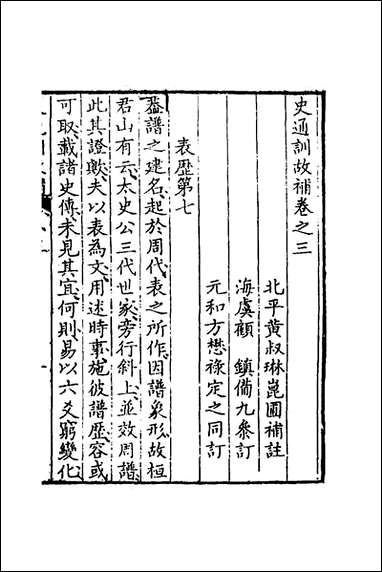 史通訓故補卷之三
北平黃叔琳崑圃補註
海虞顧　鎮備九參訂
元和方懋祿定之同訂
表歷第七
蓋譜之建名起於周代表之所作因譜象形故桓
君山有云太史公三代世家旁行斜上並效周譜
此其證歟夫以表為文用述時事施彼譜歷容或
可取載諸史傳未見其宜何則易以六爻窮變化